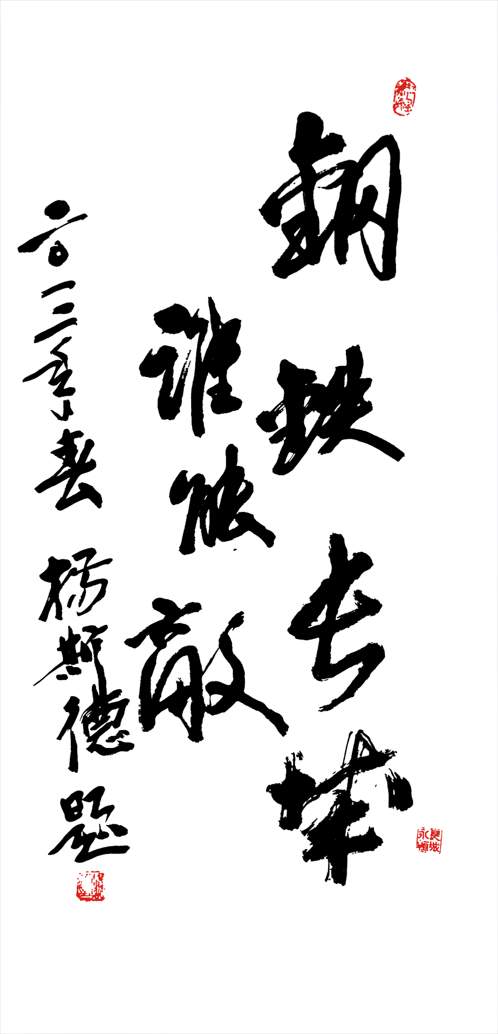 钢铁长城
谁能敌
二〇一三年春 杨斯德题